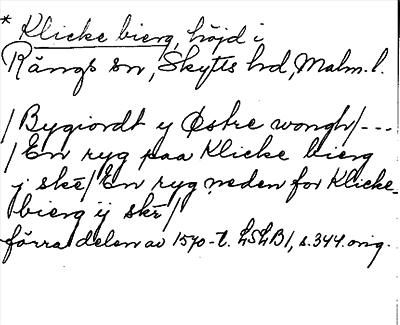 * Klicke bierg, höjd i
Rängs sn, Skytts hd, Malm. l.
/Bygiordt y Østre wongh/---
/En ryg paa Klicke bierg
j skē/ En ryg neden for Klicke-
bierg ij skē/
förra delen av 1570-t. LSLB1, s. 344. orig.